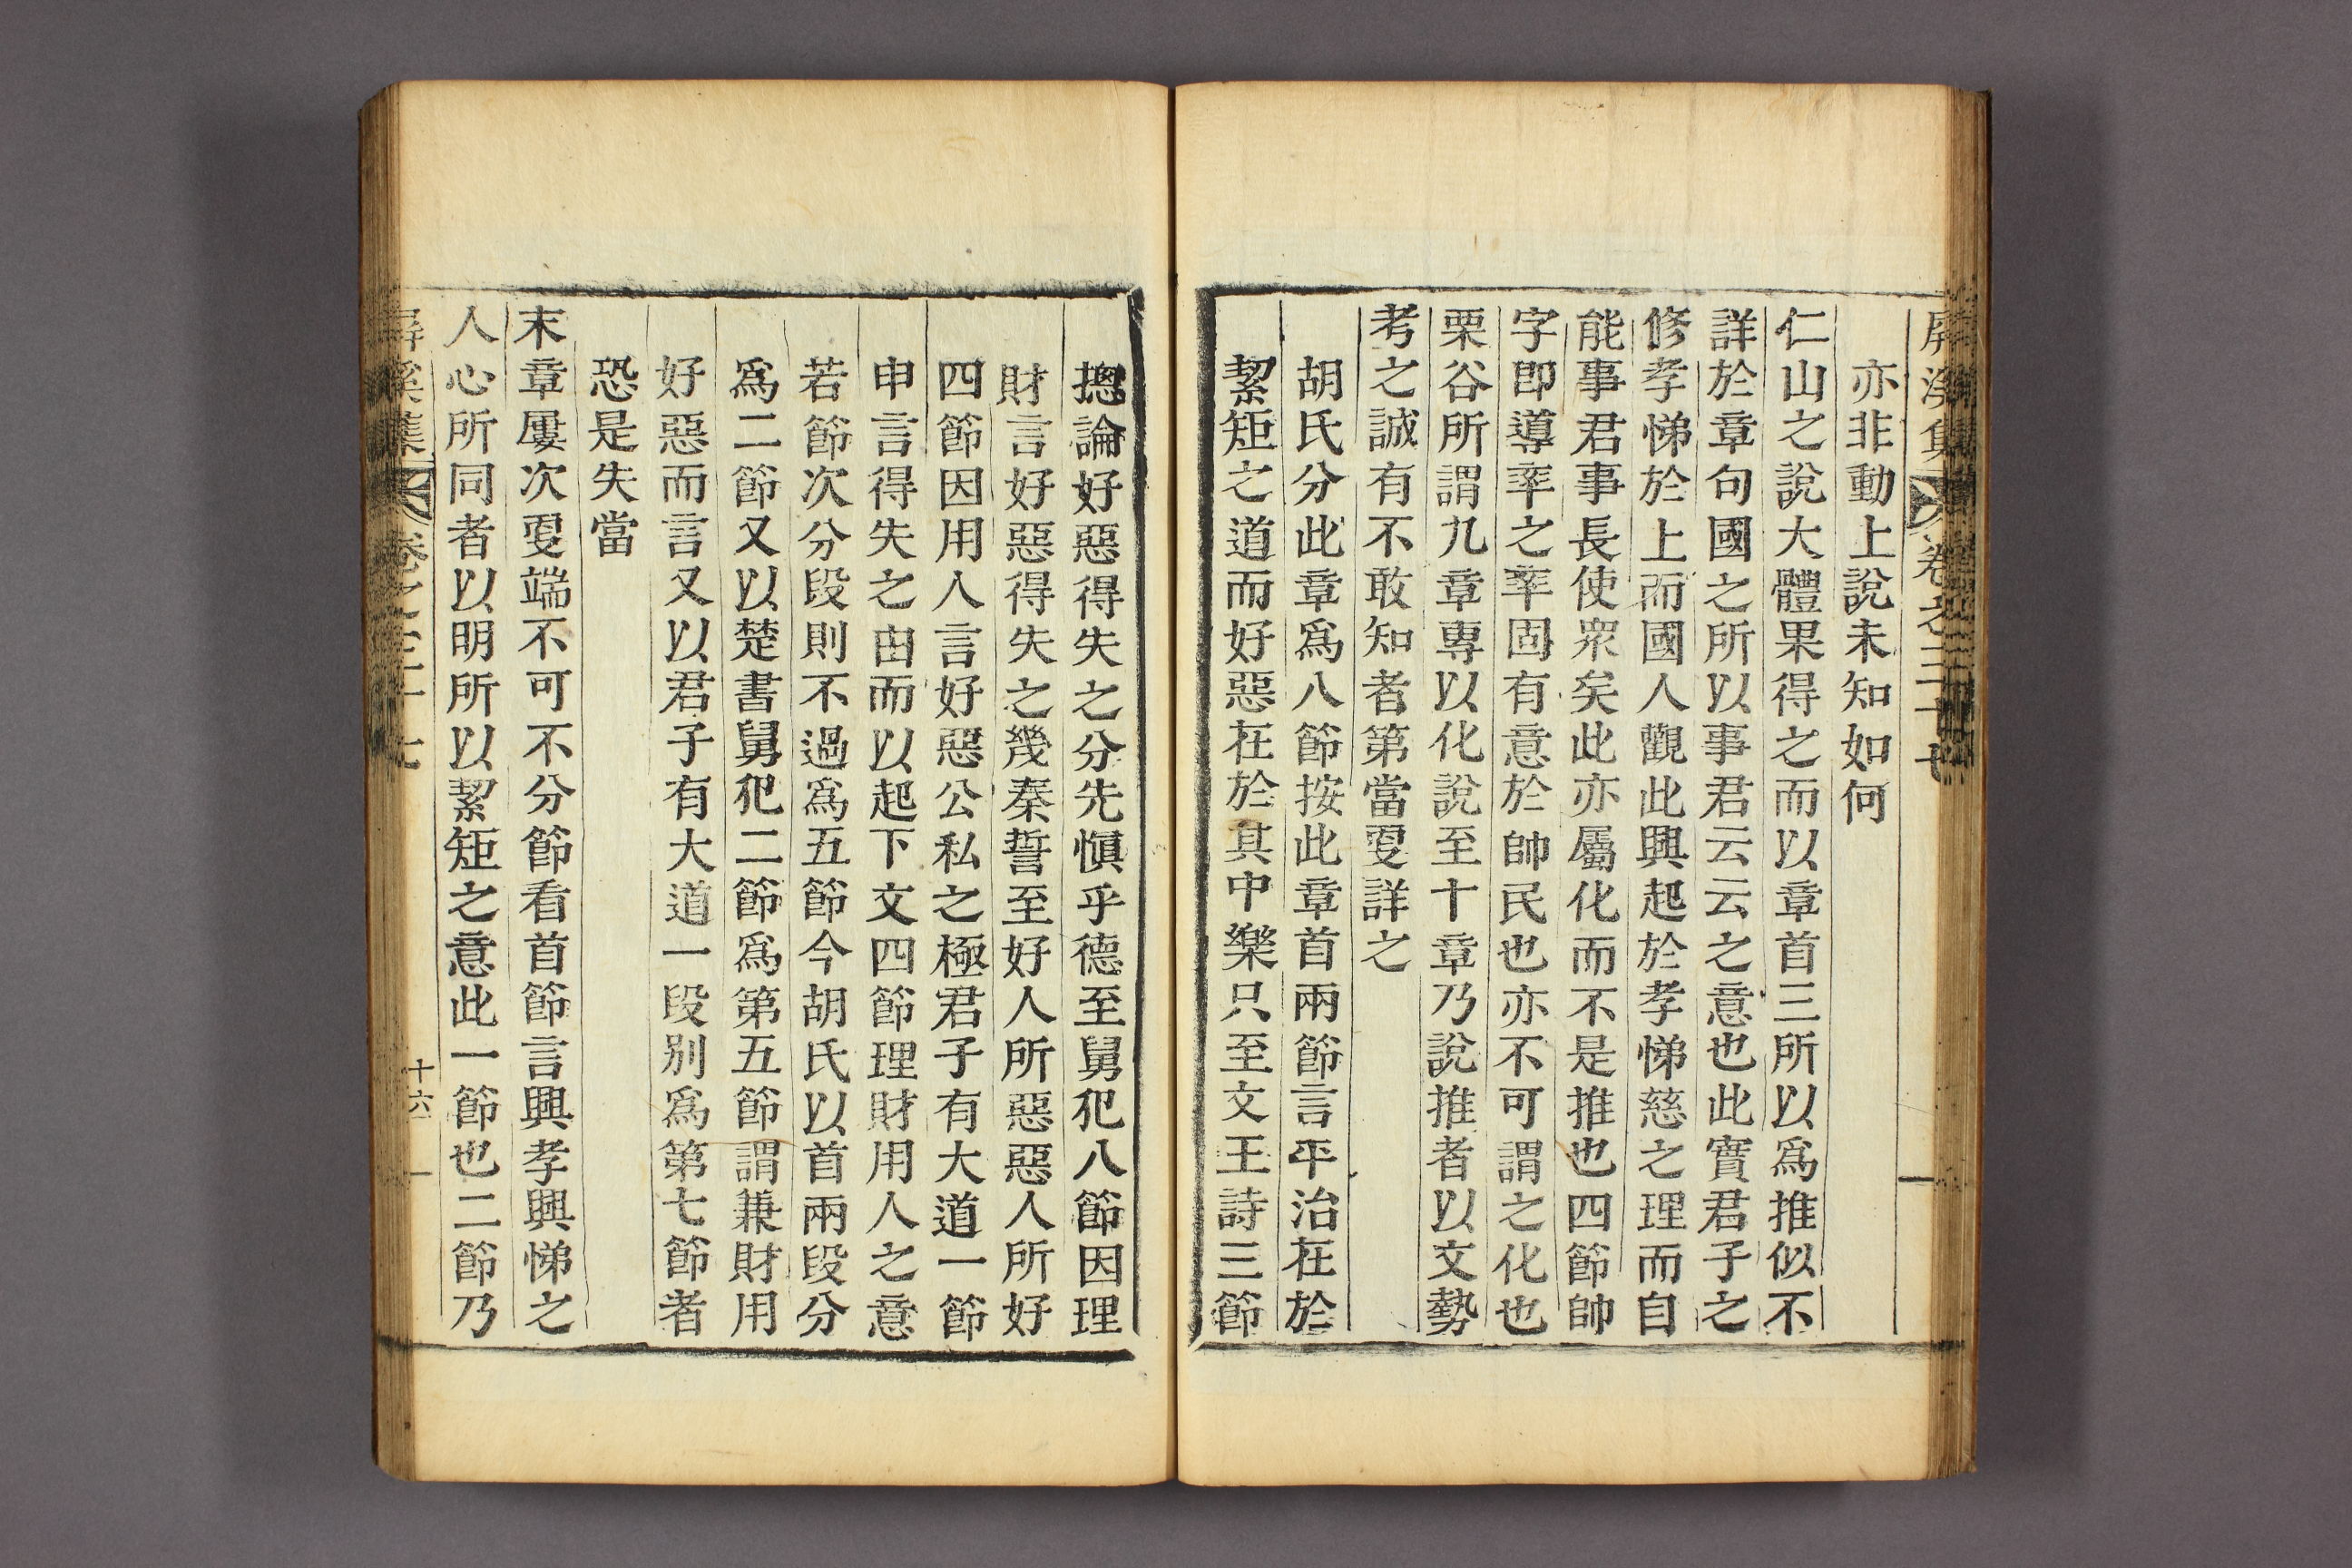 屛溪集 卷之三十七
亦非動上說未知如何
仁山之說大體果得之而以章首三所以爲推似不
詳於章句國之所以事君云云之意也此實君子之
修孝悌於上而國人觀此興起於孝悌慈之理而自
能事君事長使衆矣此亦屬化而不是推也四節帥
字卽導率之率固有意於帥民也亦不可謂之化也
栗谷所謂九章專以化說至十章乃說推者以文勢
考之誠有不敢知者第當更詳之
胡氏分此章爲八節按此章首兩節言平治在於
絜矩之道而好惡在於其中樂只至文王詩三節
摠論好惡得失之分先愼乎德至舅犯八節因理
財言好惡得失之幾秦誓至好人所惡惡人所好
四節因用人言好惡公私之極君子有大道一節
申言得失之由而以起下文四節理財用人之意
若節次分段則不過爲五節今胡氏以首兩段分
爲二節又以楚書舅犯二節爲第五節謂兼財用
好惡而言又以君子有大道一段別爲第七節者
恐是失當
末章屢次更端不可不分節看首節言興孝興悌之
人心所同者以明所以絜矩之意此一節也二節乃
屛溪集 卷之三十七 十六